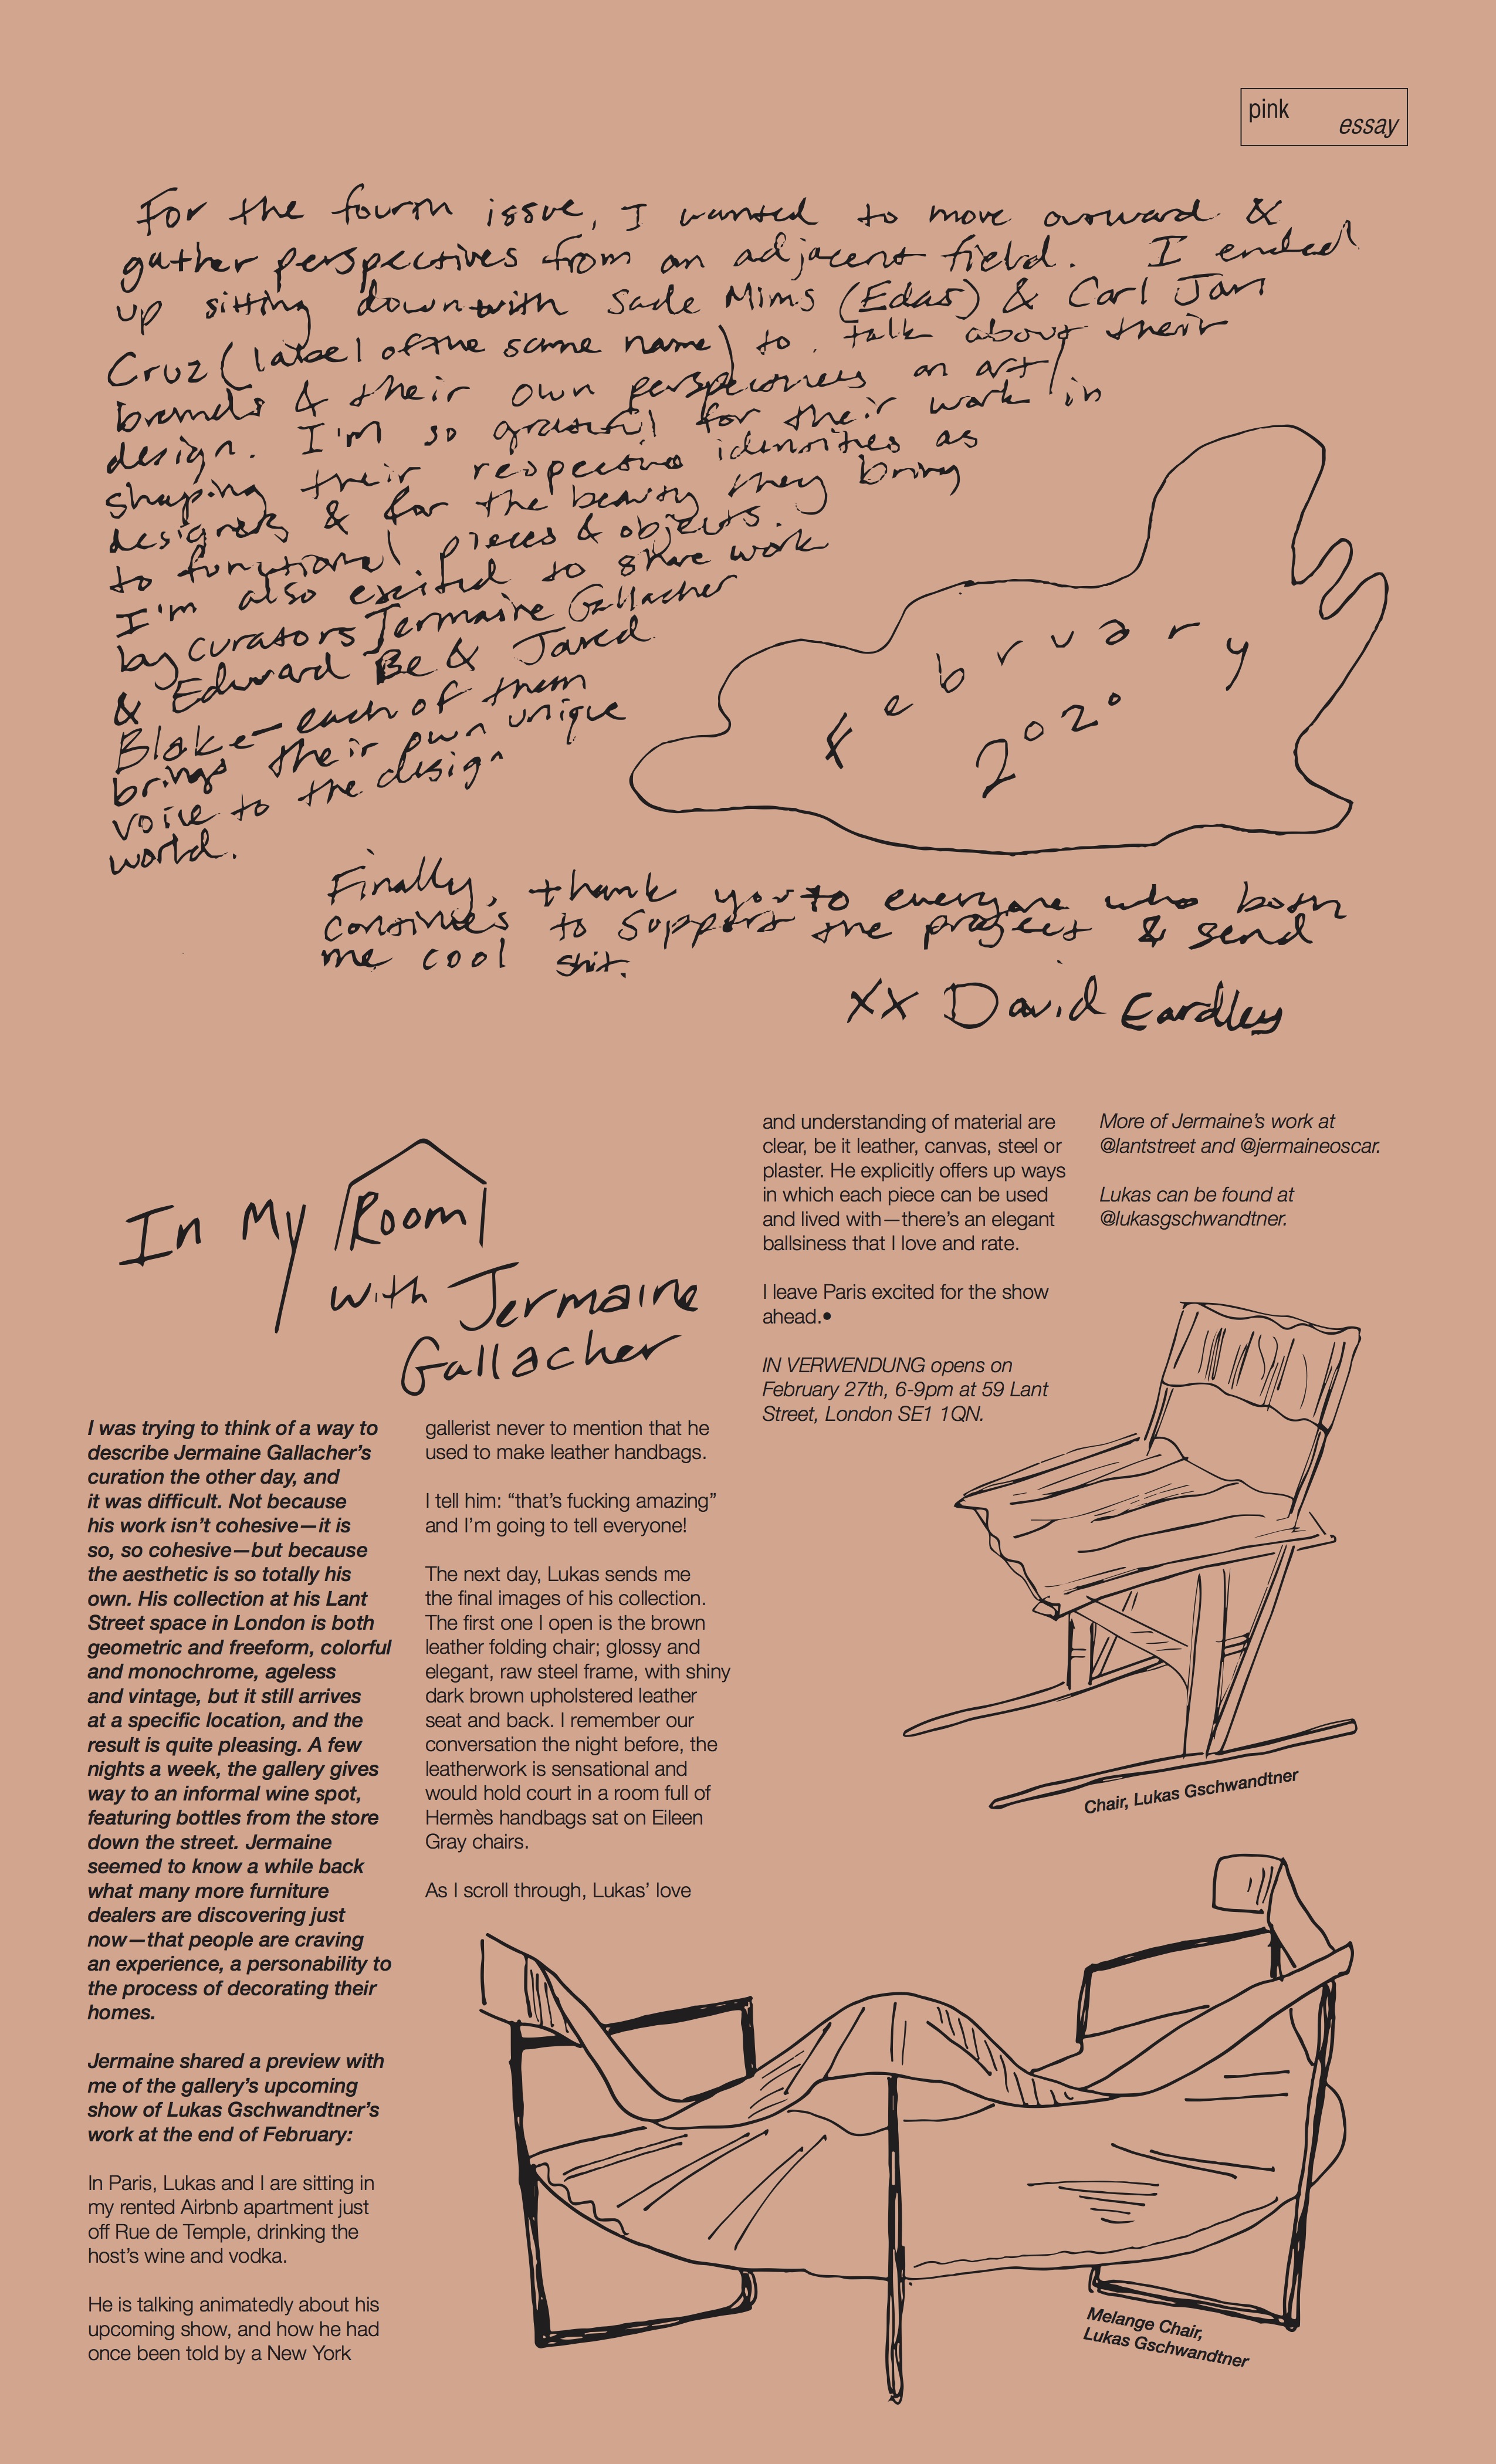 pink
essay
For the fourth issue, I wanted to move onward &
gather perspectives from an adjacent field. I ended
up sitting down with Sade Mims (Edas) & Carl Jan
Cruz (label of the same name) to talk about their
brands & their own perspectives on art/
design. I'm so grateful for their work in
shaping their respective identities as
designers & for the beauty they bring
to functional pieces & objects.
I'm also excited to share work
by curators Jermaine Gallacher
& Edward Be & Jared
Blake—each of them
brings their own unique
voice to the design
world.
February
2020
Finally, thank you to everyone who both
continues to support the project & send
me cool shit.
XX David Eardley
In My Room
with Jermaine
Gallacher
I was trying to think of a way to
describe Jermaine Gallacher's
curation the other day, and
it was difficult. Not because
his work isn't cohesive—it is
so, so cohesive—but because
the aesthetic is so totally his
own. His collection at his Lant
Street space in London is both
geometric and freeform, colorful
and monochrome, ageless
and vintage, but it still arrives
at a specific location, and the
result is quite pleasing. A few
nights a week, the gallery gives
way to an informal wine spot,
featuring bottles from the store
down the street. Jermaine
seemed to know a while back
what many more furniture
dealers are discovering just
now—that people are craving
an experience, a personability to
the process of decorating their
homes.
Jermaine shared a preview with
me of the gallery's upcoming
show of Lukas Gschwandtner's
work at the end of February:
In Paris, Lukas and I are sitting in
my rented Airbnb apartment just
off Rue de Temple, drinking the
host's wine and vodka.
He is talking animatedly about his
upcoming show, and how he had
once been told by a New York
gallerist never to mention that he
used to make leather handbags.
I tell him: “that's fucking amazing”
and I'm going to tell everyone!
The next day, Lukas sends me
the final images of his collection.
The first one I open is the brown
leather folding chair; glossy and
elegant, raw steel frame, with shiny
dark brown upholstered leather
seat and back. I remember our
conversation the night before, the
leatherwork is sensational and
would hold court in a room full of
Hermès handbags sat on Eileen
Gray chairs.
As I scroll through, Lukas' love
and understanding of material are
clear, be it leather, canvas, steel or
plaster. He explicitly offers up ways
in which each piece can be used
and lived with—there's an elegant
ballsiness that I love and rate.
I leave Paris excited for the show
ahead.•
IN VERWENDUNG opens on
February 27th, 6-9pm at 59 Lant
Street, London SE1 1QN.
More of Jermaine's work at
@lantstreet and @jermaineoscar.
Lukas can be found at
@lukasgschwandtner.
Chair, Lukas Gschwandtner
Melange Chair,
Lukas Gschwandtner